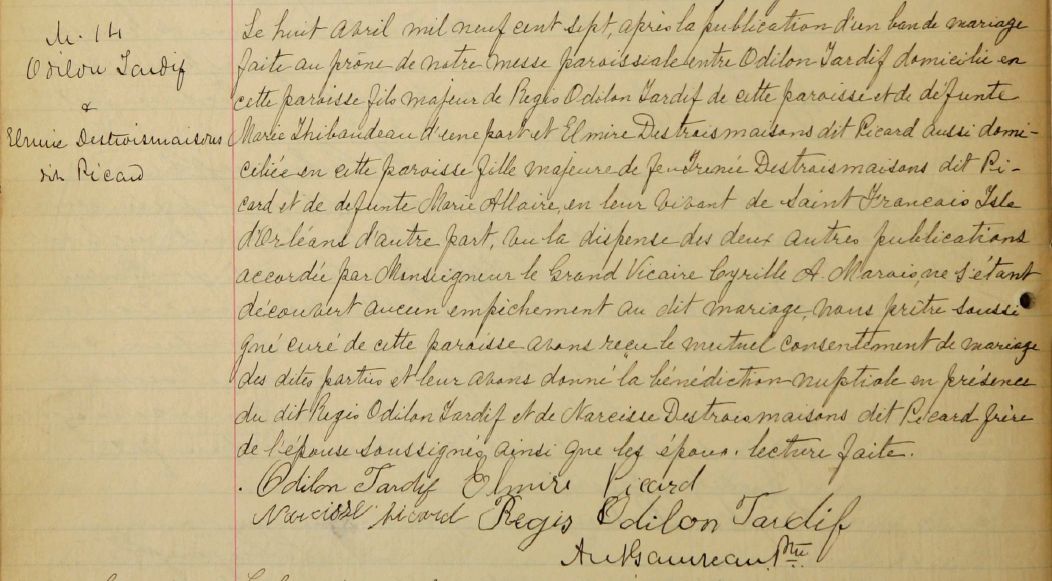 M. 14
Odilon Tardif
&
Elmire Destroismaisons
dit Picard
Le huit Avril mil neuf cent sept, après la publication d'un ban de mariage
faite au prône de notre messe paroissiale entre Odilon Tardif domicilié en
cette paroisse fils majeur de Regis Odilon Tardif de cette paroisse et de défunte
Marie Thibaudeau d'une part et Elmire Destroismaisons dit Picard aussi domi-
ciliée en cette paroisse fille majeure de feu Irenée Destroismaisons dit Pi-
card et de defunte Marie Allaire, en leur vivant de Saint Francois Isle
d'Orléans d'autre part, vu la dispense des deux autres publications
accordée par Monseigneur le Grand Vicaire Cyrille A. Marois, ne s'étant
découvert aucun empichement au dit mariage, nous prêtre soussi
gné curé de cette paroisse avons reçu le mutuel consentement de mariage
des dites parties et leur avons donné la bénédiction nuptiale en présence
du dit Regis Odilon Tardif et de Narcisse Destroismaisons dit Picard frère
de l'épouse soussignés ainsi que les époux. lecture faite.
Odilon Tardif Elmire Picard
Narcisse Picard Regis Odilon Tardif
Ptre